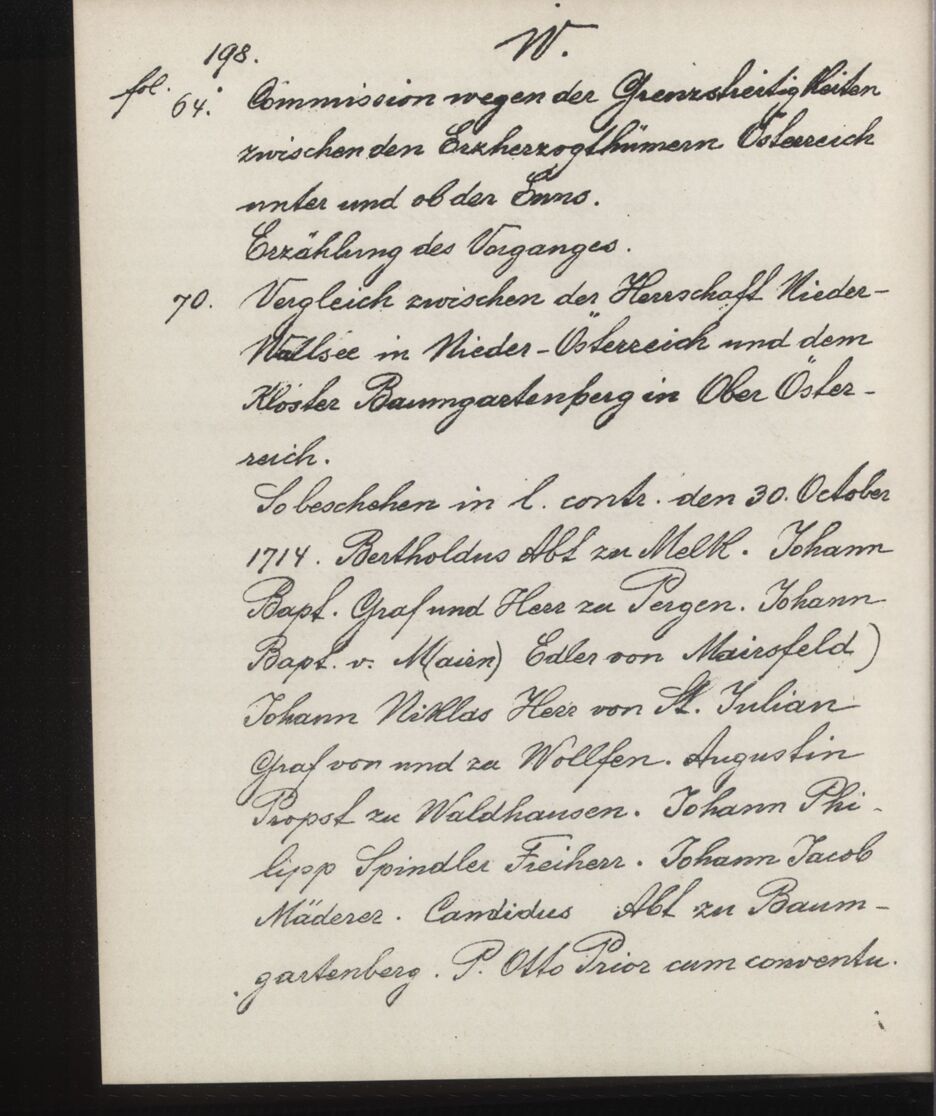 198. W.
fol. 64. Commission wegen der Grenzstreitigkeiten
zwischen den Erzherzogthümern Österreich
unter und ob der Enns.
Erzählung des Vorganges.
70. Vergleich zwischen der Herrschaft Nieder-
Wallsee in Nieder-Österreich und dem
Kloster Baumgartenberg in Ober Öster-
reich.
So beschehen in l. contr. den 30. October
1714. Bertholdus Abt zu Melk. Johann
Bapt. Graf und Herr zu Pergen. Johann
Bapt. v. M(aiern) Edler von Mairsfeld)
Johann Niklas Herr von St. Julian
Graf von und zu Wollfen. Augustin
Propst zu Waldhausen. Johann Phi-
lipp Spindler Freiherr. Johann Jacob
Mäderer. Candidus Abt zu Baum-
gartenberg. P. Otto Prior cum conventu.